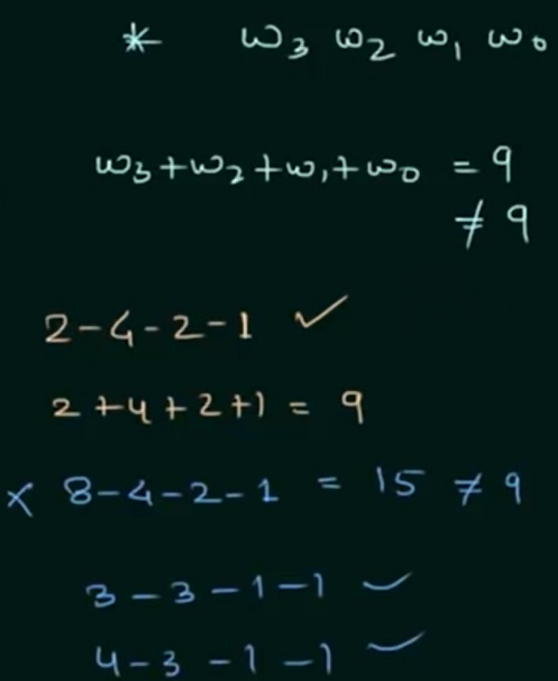 * ω₃ ω₂ ω₁ ω₀
ω₃+ω₂+ω₁+ω₀ = 9
≠ 9
2-4-2-1 ✓
2+4+2+1 = 9
× 8-4-2-1 = 15 ≠ 9
3-3-1-1 ✓
4-3-1-1 ✓